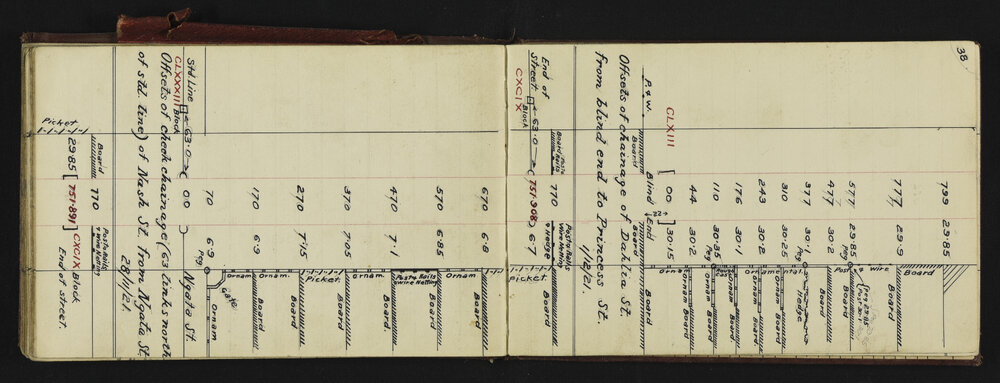 38
799 29.85
777 29.9 Board
wire
577 29.85 Peg Post
477 30.2
377 30.1 Peg Hedge
310 30.25 Board
243 30.2 Ornam
176 30.1 Board
110 30.35 Peg Ornam
44 30.2 Board
Ornamental
CLXIII [ 00 30.15 ] Ornam
22
P. & W. Board Blind End Board
Offsets of chainage of Dahlia St.
from blind end to Princess St.
1/12/21.
Board Posts & Rails Posts & Rails Wire Netting & Hedge
770 Board
End of Street 63.0 751.908 6.7 Picket
CXCIX Block
670 6.8
570 6.85 Board Ornam
470 7.1 Board Posts Rails & Wire Netting
370 7.05 Board Ornam.
270 7.15 Board Picket
170 6.9 Board Ornam.
Ornam
70 6.9 Peg Gate Ornam
Std Line 63.0 00 Ngata St.
CLXXXII Block
Offsets of check chainage (63 links north
of std. line) of Nash St. from Ngata St.
28/11/21.
Board 770 Posts Rails & Wire Netting
Picket 29.85 [ 751.891 ] CXCIX Block
End of street.